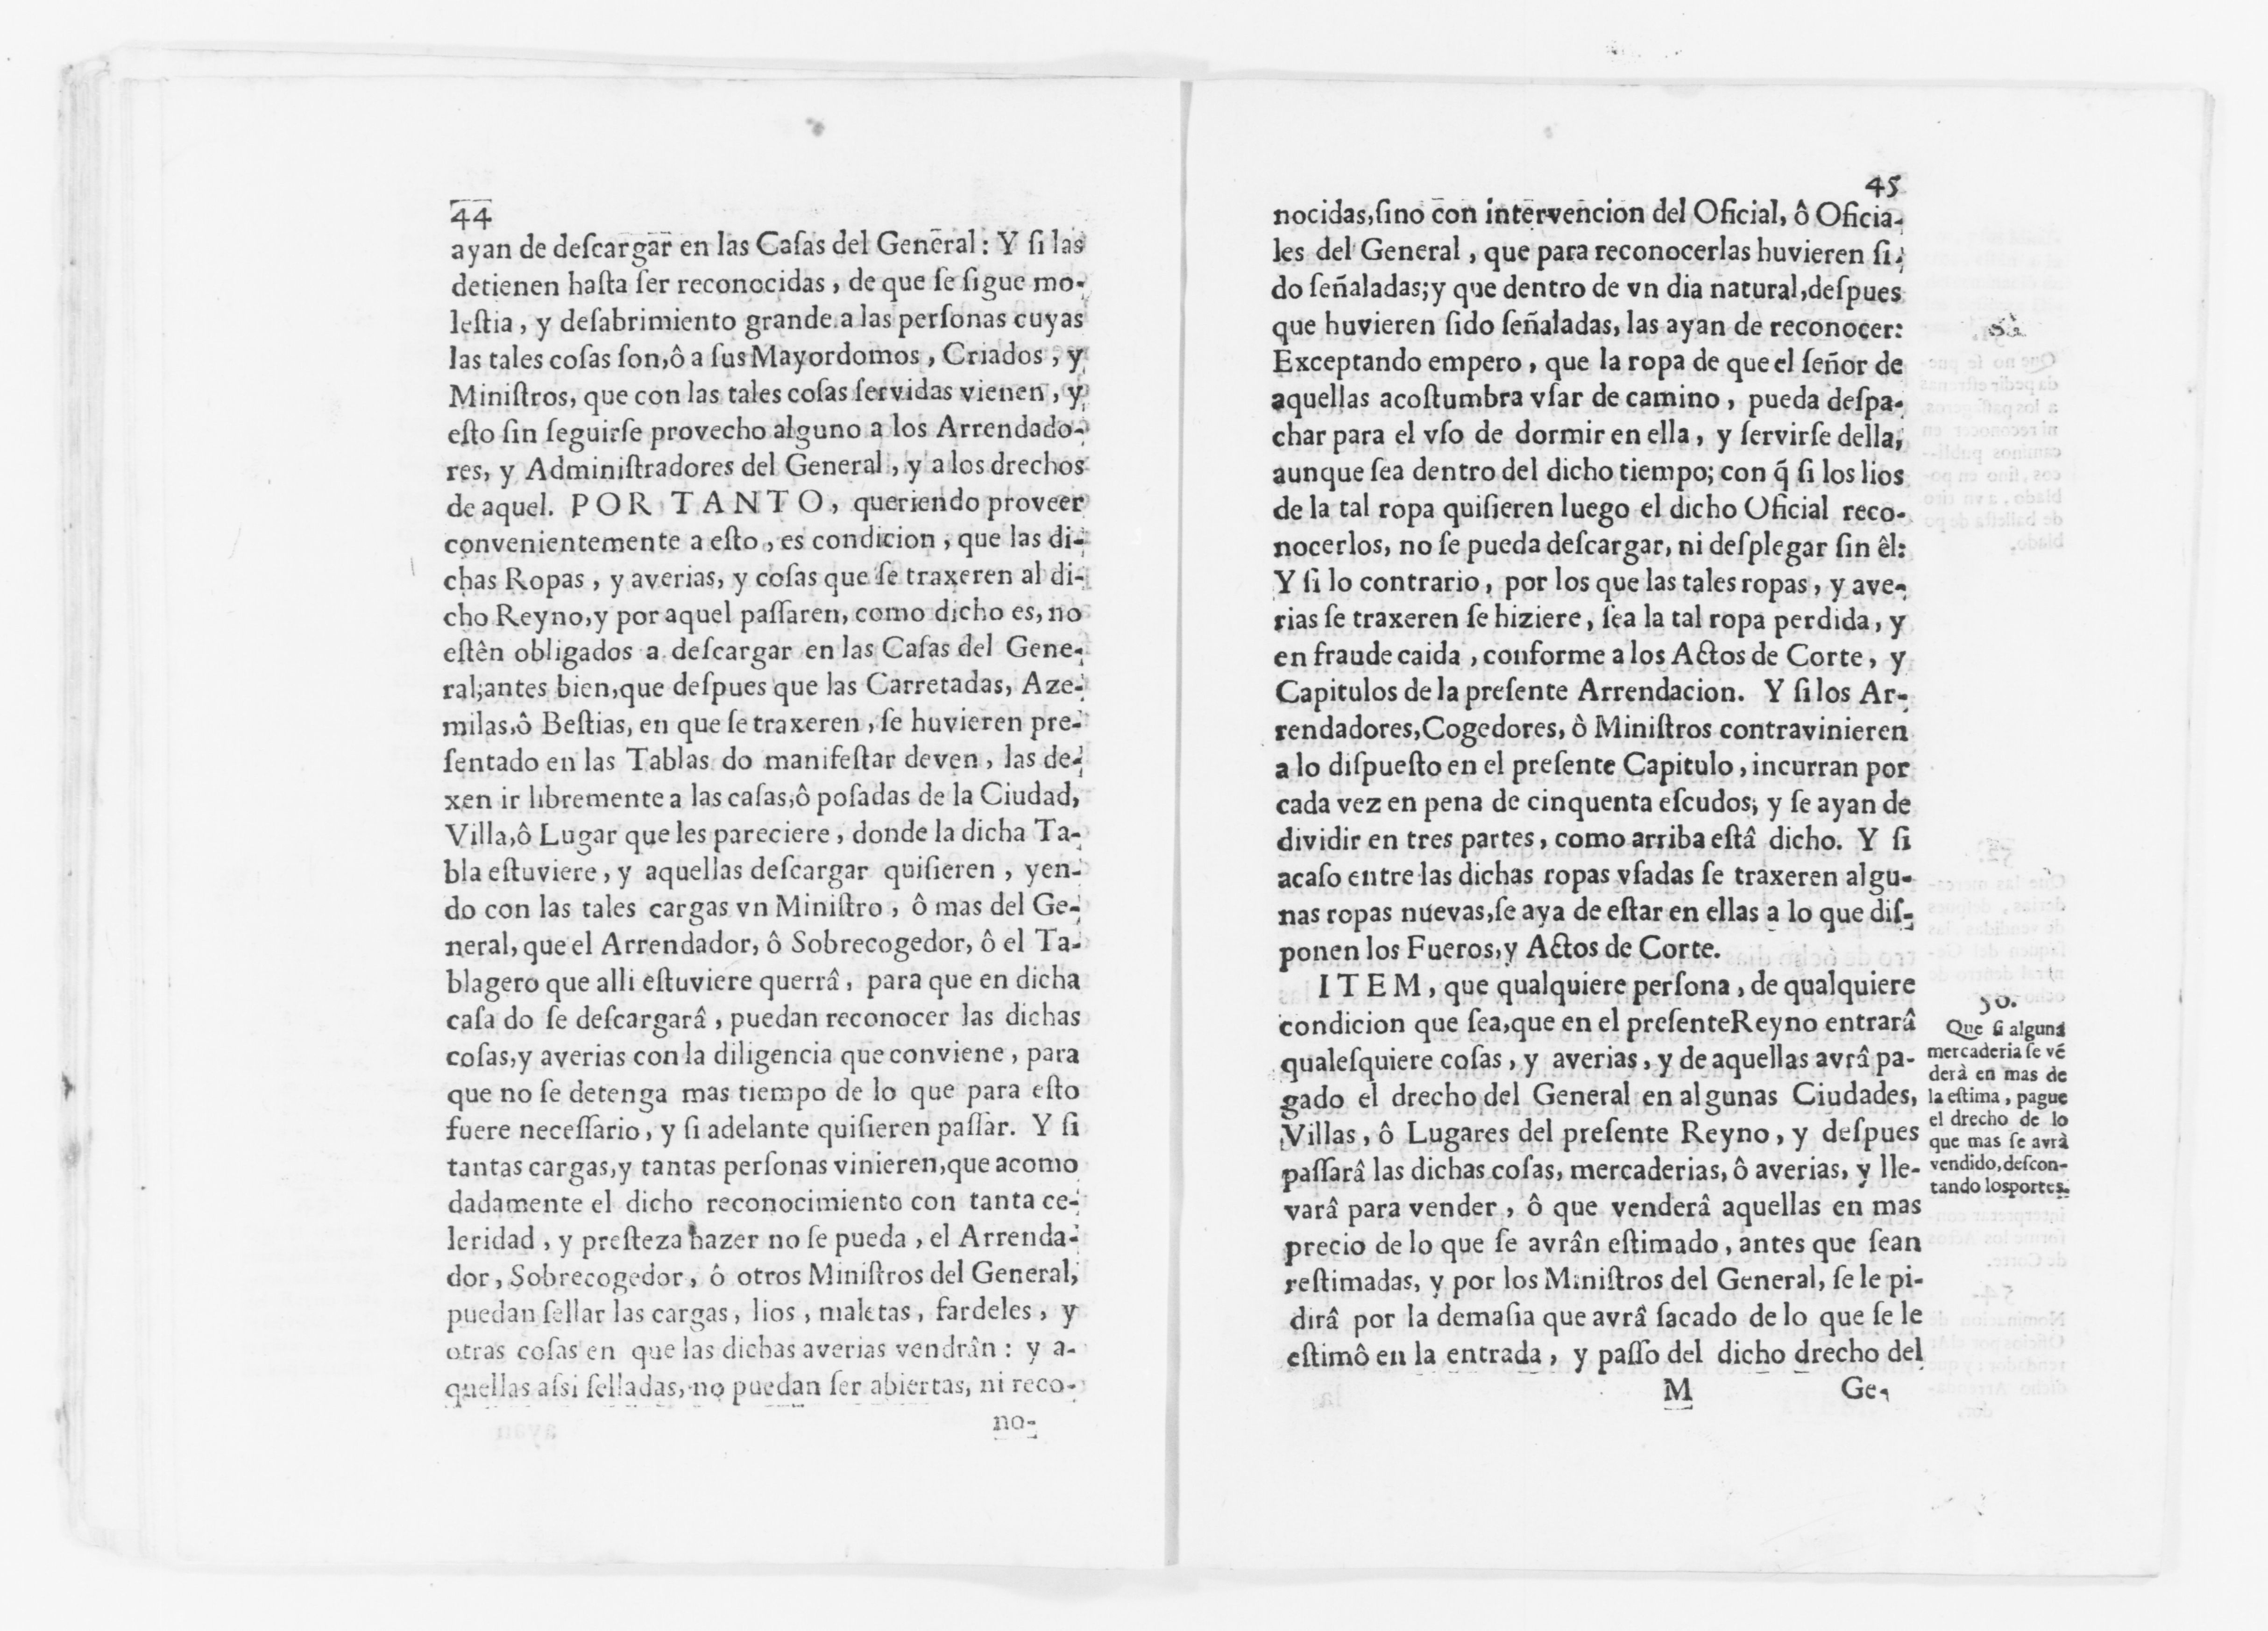 44
ayan de deſcargar en las Caſas del General: Y ſi las
detienen haſta ſer reconocidas, de que ſe ſigue mo-
leſtia, y deſabrimiento grande a las perſonas cuyas
las tales coſas ſon, ô a ſus Mayordomos, Criados, y
Miniſtros, que con las tales coſas ſervidas vienen, y
eſto ſin ſeguirſe provecho alguno a los Arrendado-
res, y Adminiſtradores del General, y a los drechos
de aquel. POR TANTO, queriendo proveer
convenientemente a eſto, es condicion, que las di-
chas Ropas, y averias, y coſas que ſe traxeren al di-
cho Reyno, y por aquel paſſaren, como dicho es, no
eſtên obligados a deſcargar en las Caſas del Gene-
ral; antes bien, que deſpues que las Carretadas, Aze-
milas, ô Beſtias, en que ſe traxeren, ſe huvieren pre-
ſentado en las Tablas do manifeſtar deven, las de-
xen ir libremente a las caſas, ô poſadas de la Ciudad,
Villa, ô Lugar que les pareciere, donde la dicha Ta-
bla eſtuviere, y aquellas deſcargar quiſieren, yen-
do con las tales cargas vn Miniſtro, ô mas del Ge-
neral, que el Arrendador, ô Sobrecogedor, ô el Ta-
blagero que alli eſtuviere querrâ, para que en dicha
caſa do ſe deſcargarâ, puedan reconocer las dichas
coſas, y averias con la diligencia que conviene, para
que no ſe detenga mas tiempo de lo que para eſto
fuere neceſſario, y ſi adelante quiſieren paſſar. Y ſi
tantas cargas, y tantas perſonas vinieren, que acomo
dadamente el dicho reconocimiento con tanta ce-
leridad, y preſteza hazer no ſe pueda, el Arrenda-
dor, Sobrecogedor, ô otros Miniſtros del General,
puedan ſellar las cargas, lios, maletas, fardeles, y
otras coſas en que las dichas averias vendrân: y a-
quellas aſsi ſelladas, no puedan ſer abiertas, ni reco-
no-
45
nocidas, ſino con intervencion del Oficial, ô Oficia-
les del General, que para reconocerlas huvieren ſi-
do ſeñaladas; y que dentro de vn dia natural, deſpues
que huvieren ſido ſeñaladas, las ayan de reconocer:
Exceptando empero, que la ropa de que el ſeñor de
aquellas acoſtumbra vſar de camino, pueda deſpa-
char para el vſo de dormir en ella, y ſervirſe della,
aunque ſea dentro del dicho tiempo; con q̃ ſi los lios
de la tal ropa quiſieren luego el dicho Oficial reco-
nocerlos, no ſe pueda deſcargar, ni deſplegar ſin êl:
Y ſi lo contrario, por los que las tales ropas, y ave-
rias ſe traxeren ſe hiziere, ſea la tal ropa perdida, y
en fraude caida, conforme a los Actos de Corte, y
Capitulos de la preſente Arrendacion. Y ſi los Ar-
rendadores, Cogedores, ô Miniſtros contravinieren
a lo diſpueſto en el preſente Capitulo, incurran por
cada vez en pena de cinquenta eſcudos; y ſe ayan de
dividir en tres partes, como arriba eſtâ dicho. Y ſi
acaſo entre las dichas ropas vſadas ſe traxeren algu-
nas ropas nuevas, ſe aya de eſtar en ellas a lo que diſ-
ponen los Fueros, y Actos de Corte.
ITEM, que qualquiere perſona, de qualquiere
condicion que ſea, que en el preſente Reyno entrarâ
qualeſquiere coſas, y averias, y de aquellas avrâ pa-
gado el drecho del General en algunas Ciudades,
Villas, ô Lugares del preſente Reyno, y deſpues
paſſarâ las dichas coſas, mercaderias, ô averias, y lle-
varâ para vender, ô que venderâ aquellas en mas
precio de lo que ſe avrân eſtimado, antes que ſean
reſtimadas, y por los Miniſtros del General, ſe le pi-
dirâ por la demaſia que avrâ ſacado de lo que ſe le
eſtimô en la entrada, y paſſo del dicho drecho del
M Ge-
50.
Que ſi alguna
mercaderia ſe vẽ
derà en mas de
la eſtima, pague
el drecho de lo
que mas ſe avrà
vendido, deſcon-
tando los portes.